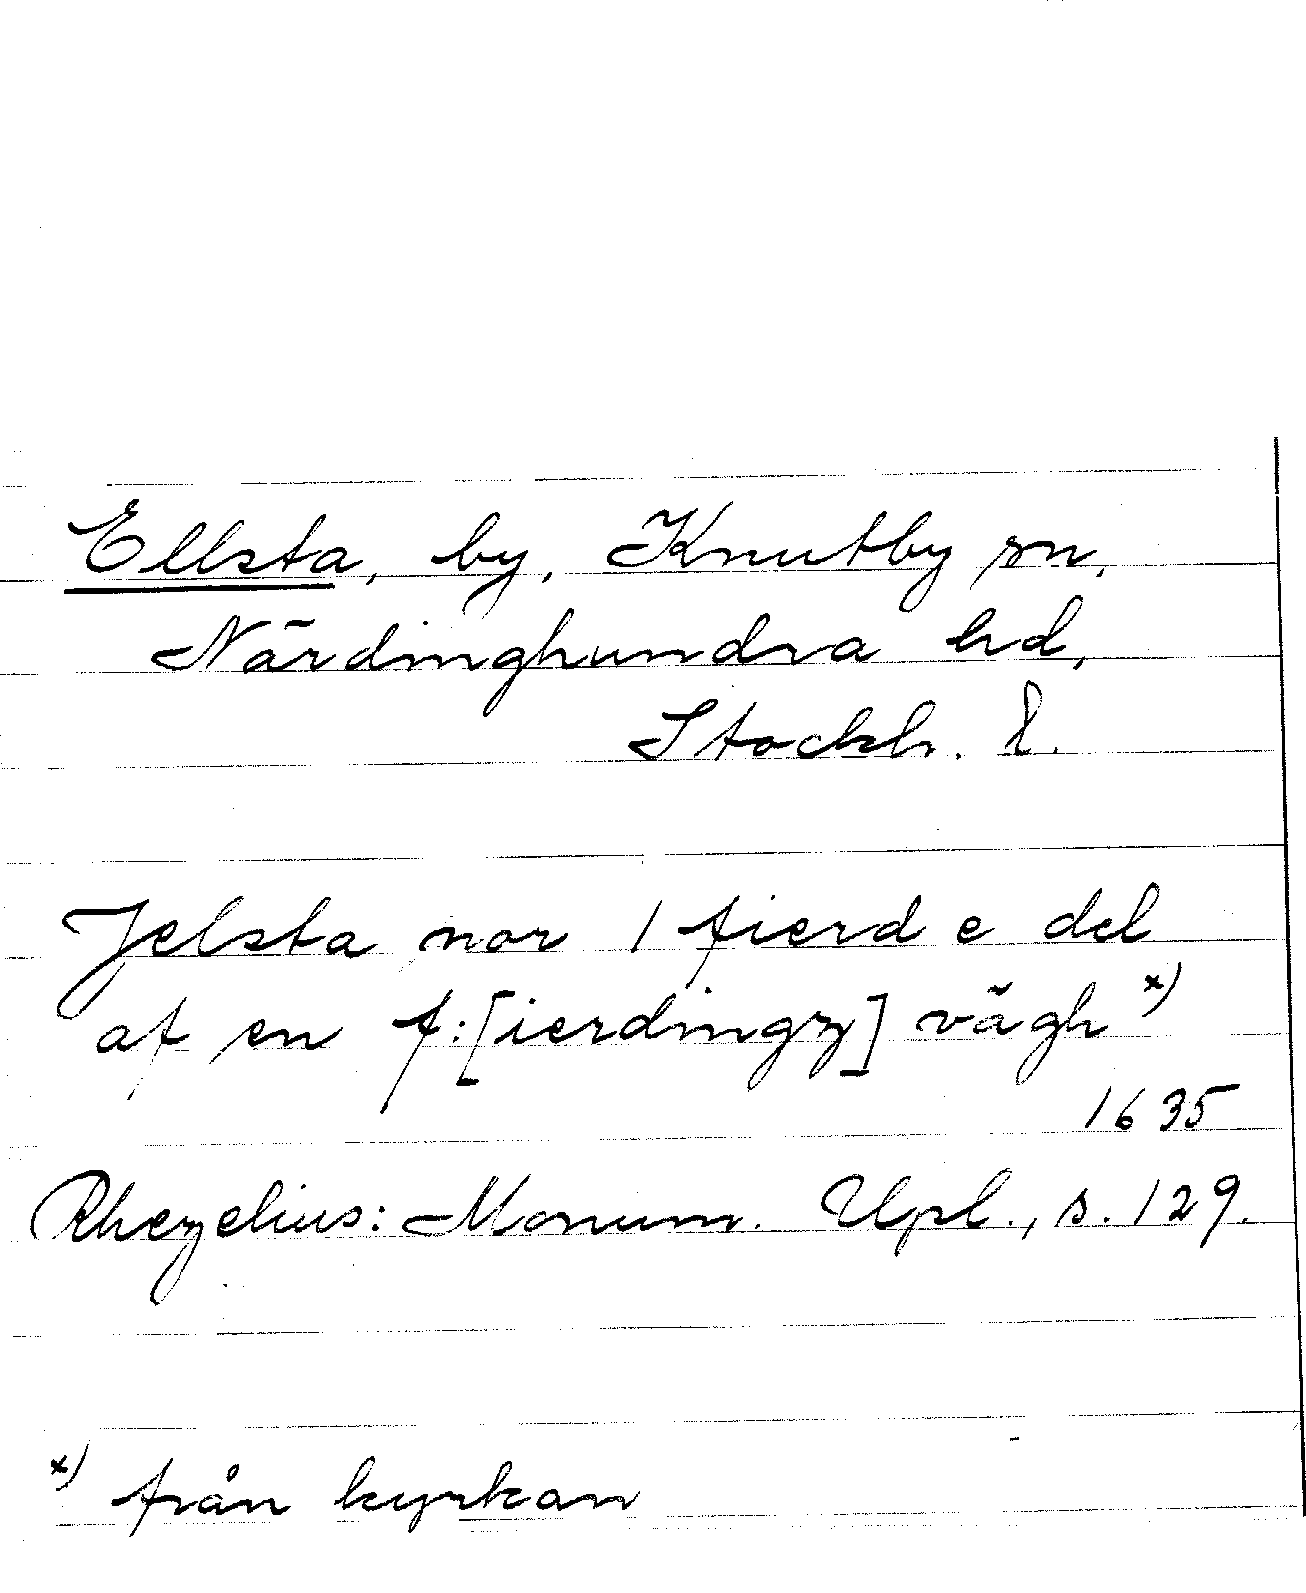 Ellsta, by, Knutby sn,
Närdinghundra hd,
Stockh. l.
Jelsta nor 1 fierde del
af en f:[ierdingz] vägh x)
1635
Rhezelius: Monum. Upl., s. 129.
x) från kyrkan